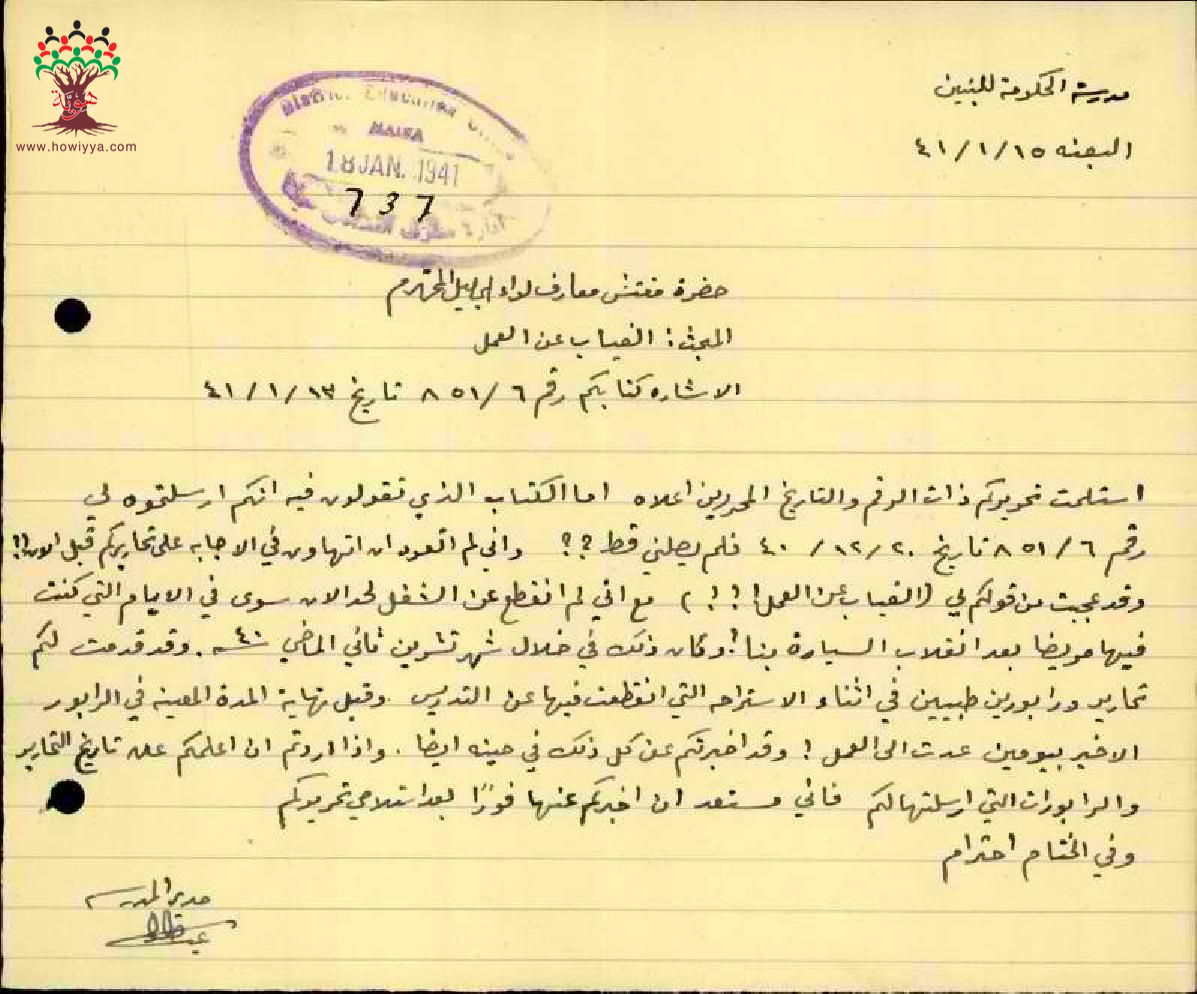 هوية
www.howiyya.com
District Education Office
HAIFA
18 JAN. 1941
737
ادارة معارف
مدرسة الحكومة للبنين
البعنه ١٥/١/٤١
حضرة مفتش معارف لواء الجليل المحترم
المبحث: الغياب عن العمل
الاشاره كتابكم رقم ٨٥١/٦ تاريخ ١٣/١/٤١
استلمت تحريركم ذات الرقم والتاريخ المحررين اعلاه اما الكتاب الذي تقولون فيه انكم ارسلتموه لي
رقم ٨٥١/٦ تاريخ ٢٠/١٢/٤٠ فلم يصلني قط ؟؟ واني لم اتعود ان اتهاون في الاجابه على تحاريركم قبل الان !؟
وقد عجبت من قولكم لي (الغياب عن العمل ! ! ! ) مع اني لم انقطع عن الشغل لحد الان سوى في الايام التي كنت
فيها مريضا بعد انقلاب السيارة بنا ! وكان ذلك في خلال شهر تشرين ثاني الماضي سنة ٤٠ . وقد قدمت لكم
تحارير ورابورين طبيين في اثناء الاستراحه التي انقطعت فيها عن التدريس . وقبل نهاية المدة المعينه في الرابور
الاخير بيومين عدت الى العمل ! وقد اخبرتكم عن كل ذلك في حينه ايضا . واذا اردتم ان اعلمكم عن تاريخ التحارير
والرابورات التي ارسلتها لكم فاني مستعد ان اخبركم عنها فورًا بعد استلامي تحريركم
وفي الختام احترام
مدير المدرسه